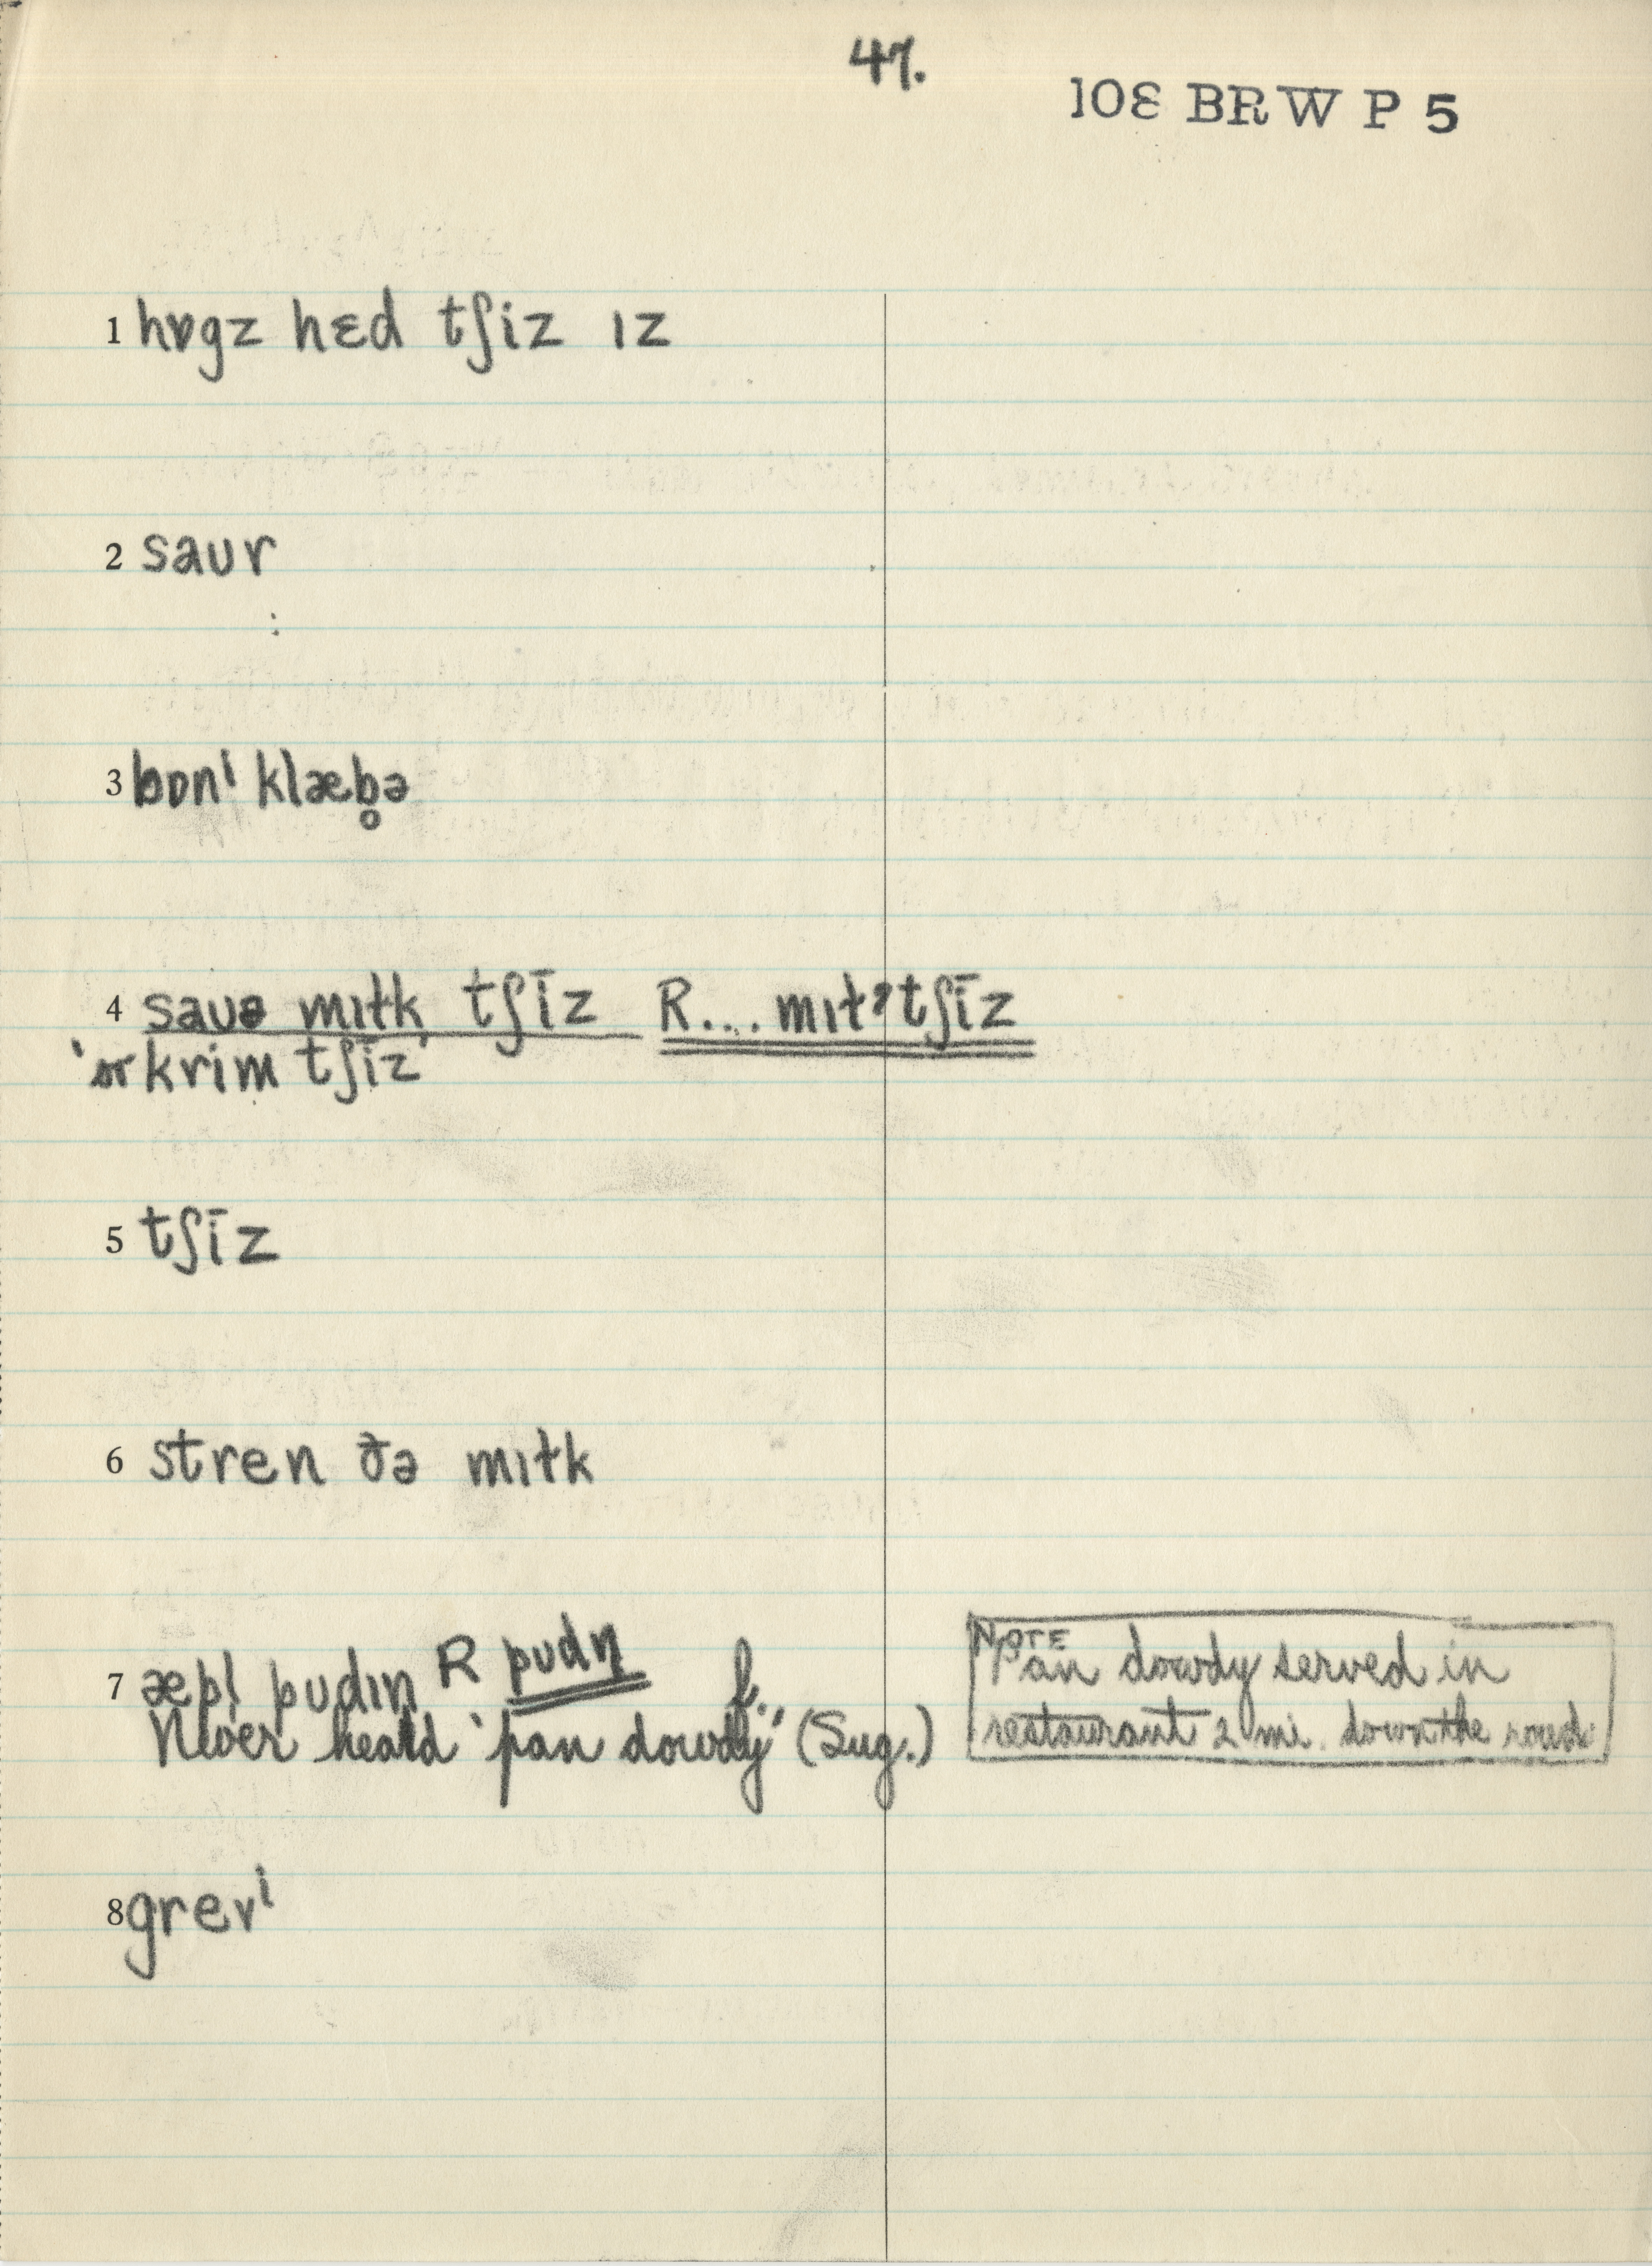 47.
108 BRW P 5
1 hɒgz hɛd tʃiz ɪz
2 saʊr
3 bɒnⁱ klæb̥ə
4 saʊə mɪɫk tʃīz R... mɪɫˀtʃīz
'or krim tʃīz'
5 tʃīz
6 stren ðə mɪɫk
7 æpl̩ pʊdɪn R pʊdn̩ f.
Never heard 'pan dowdy' (Sug.)
NOTE
Pan dowdy served in
restaurant 2 mi. down the road.
8 grevⁱ